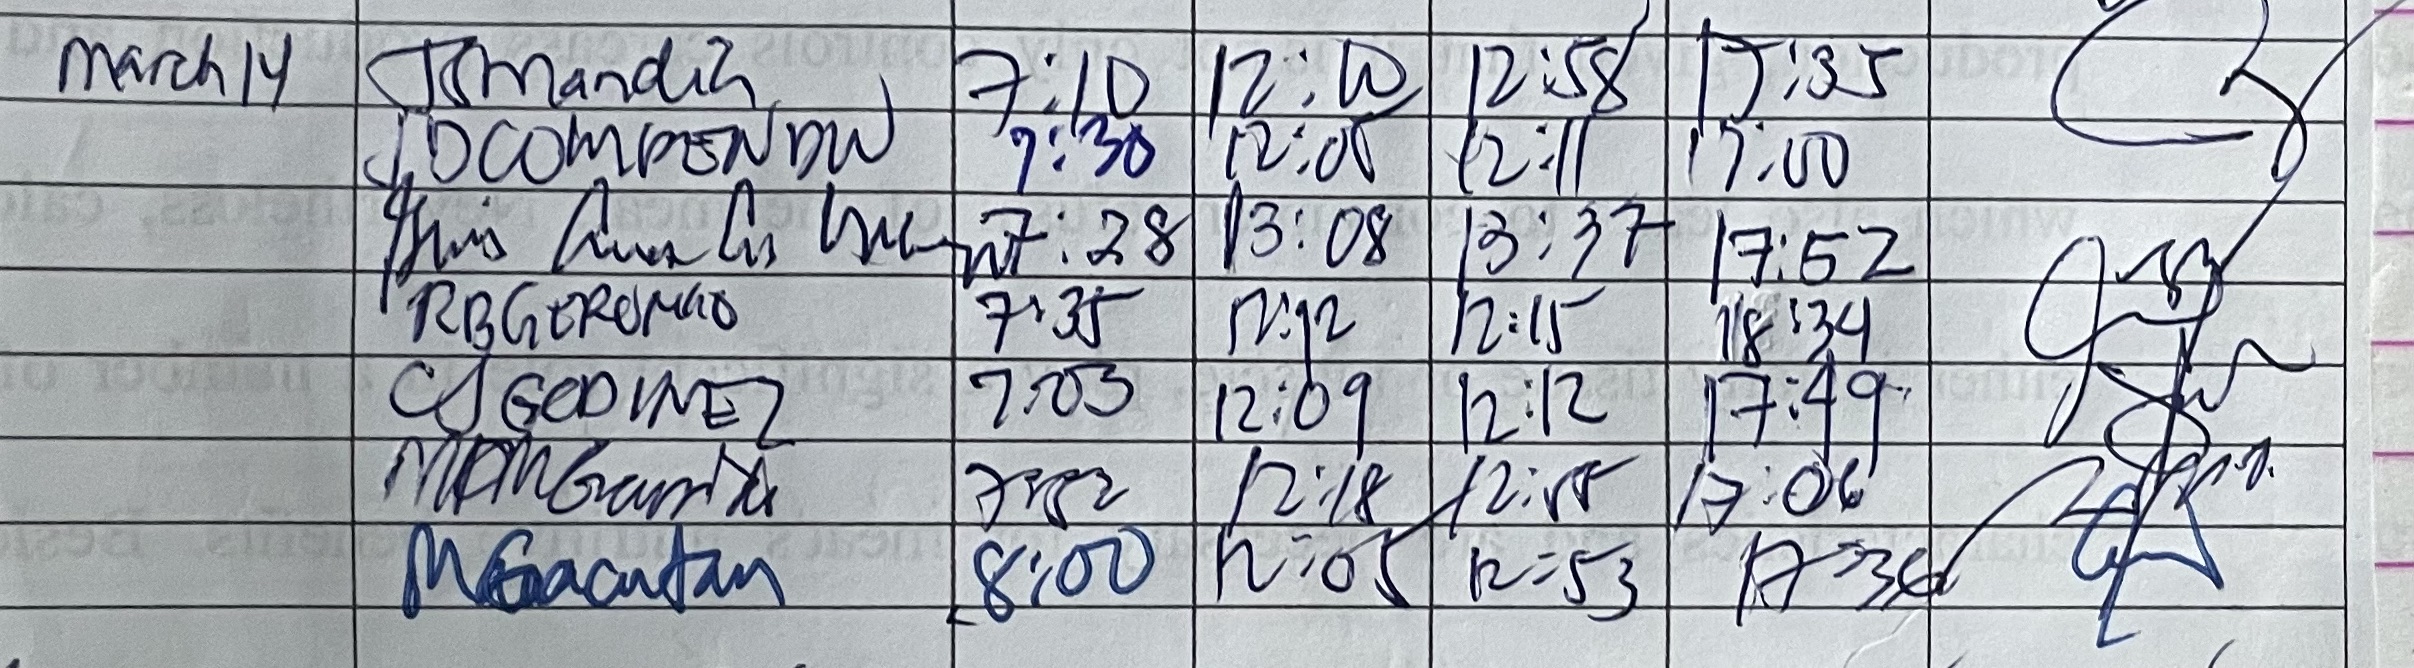 March 14 JSMandia 7:10 12:10 12:58 17:35
JDCOMPENDIO 7:30 12:05 12:11 17:00
7:28 13:08 13:37 17:52
RBGERONIMO 7:35 12:12 12:15 18:34
CJGODINEZ 7:03 12:09 12:12 17:49
7:52 12:18 12:55 17:06
MGacutan 8:00 12:05 12:53 17:36